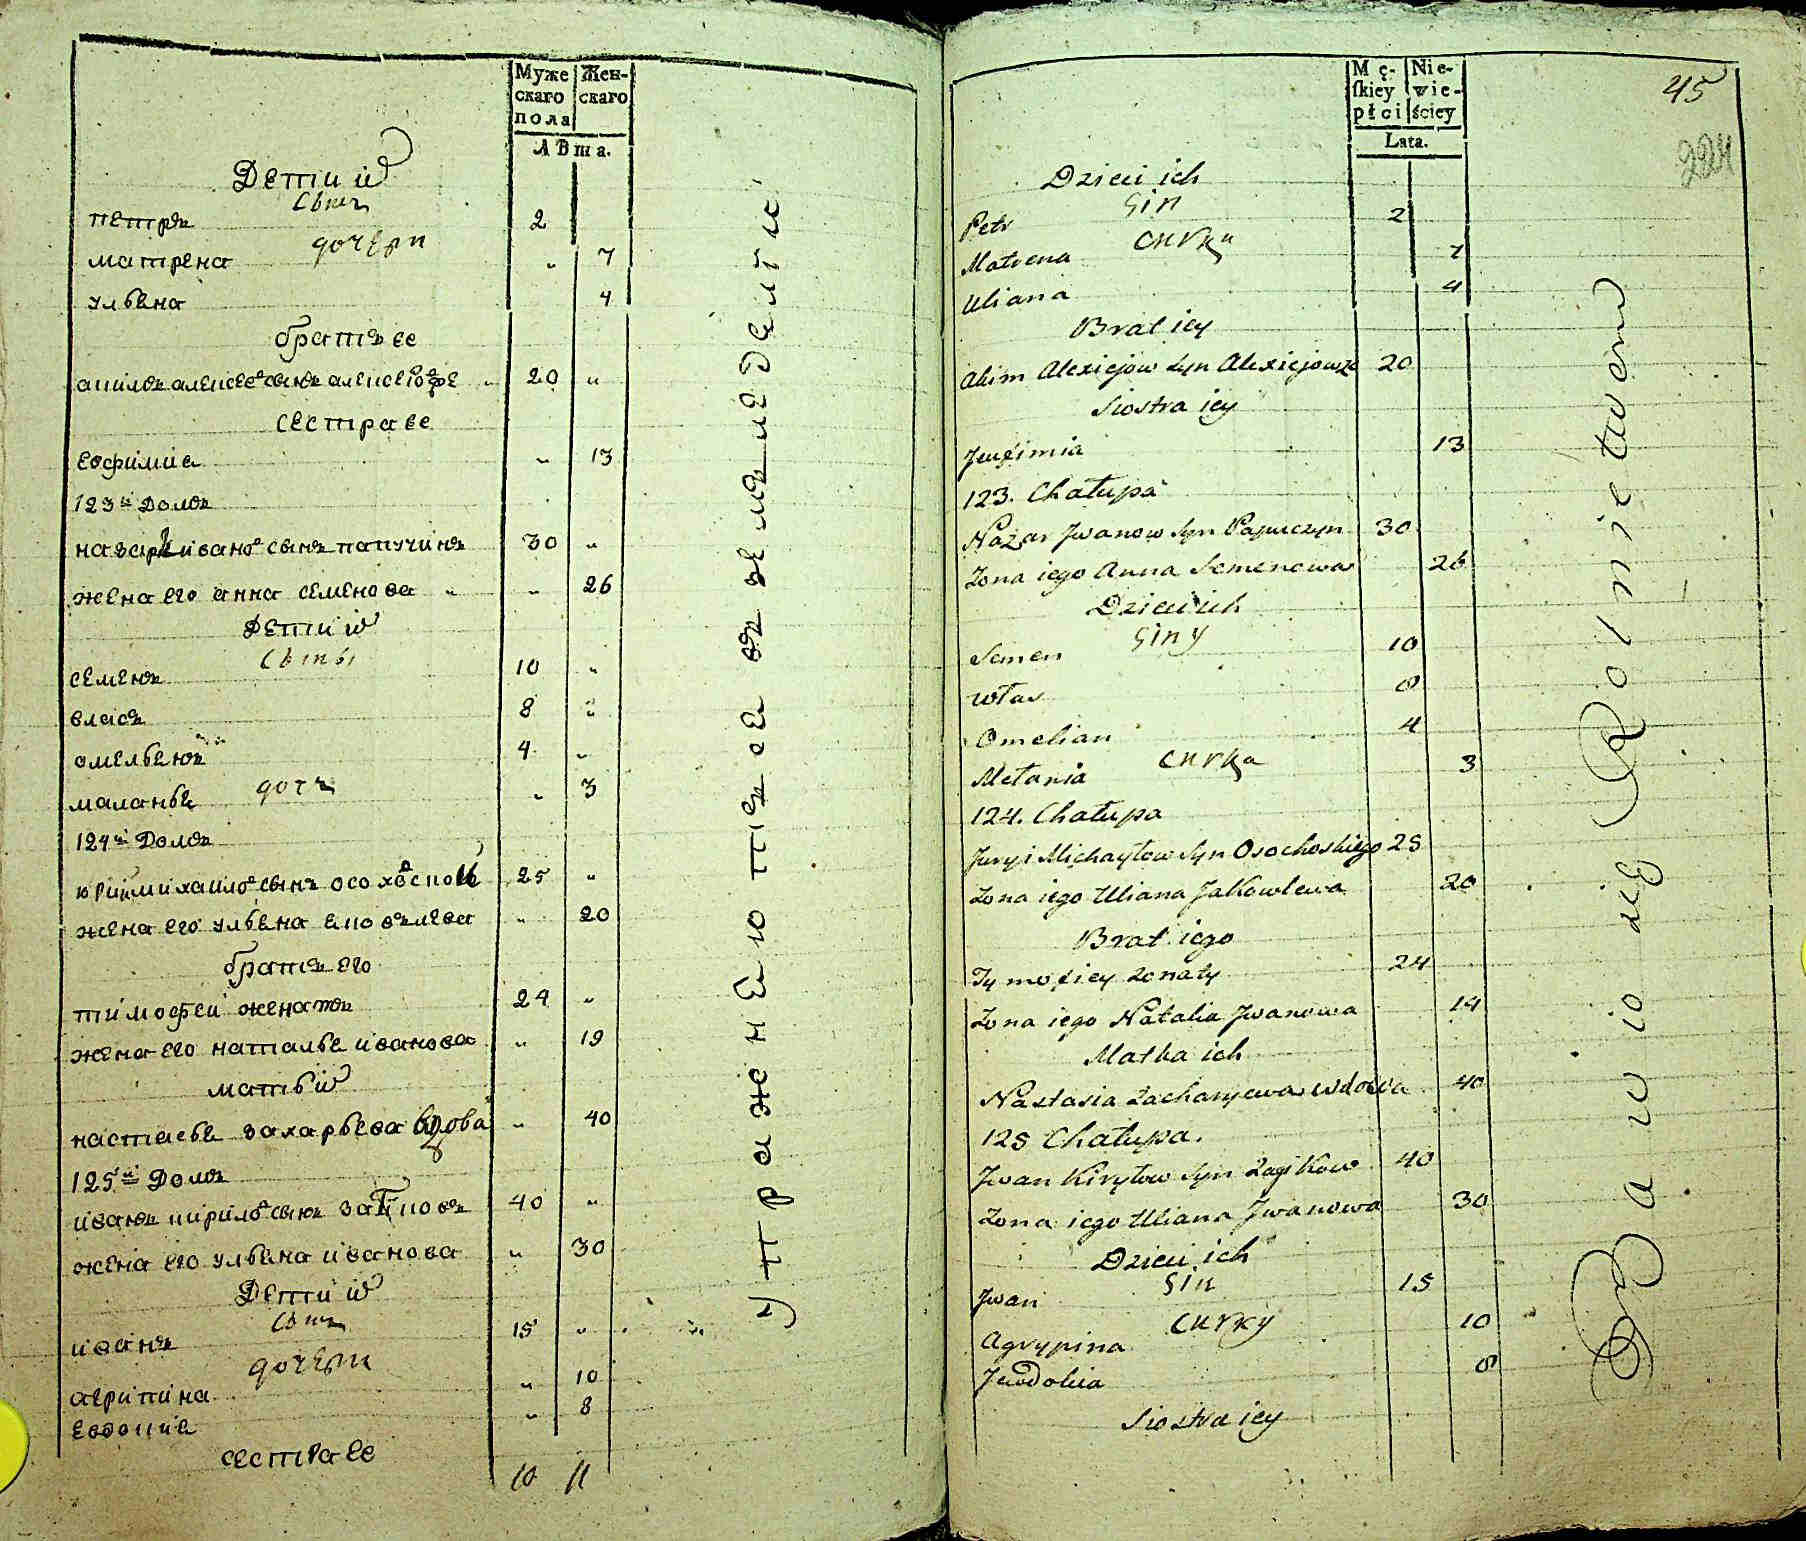 Муже скаго пола
Женскаго
Лѣта.
Дети иⷯ
сынъ
петръ 2
дочери
матрена „ 7
ульяна 4
братъ ее
акимъ алексеевъ сынъ „ 20 „
сестра ее
евфимия „ 13
123й Домъ
назаръ ивановъ сынъ папучинъ 30 „
жена его анна семенова „ „ 26
Дети иⷯ
сыны
семенъ 10 „
власъ 8 „
омельянъ 4 „
дочь
маланья „ 3
124й Домъ
юрий михайловъ сынъ 25 „
жена его ульяна яковлева „ 20
братъ его
тимофей женатъ 24 „
жена его наталья иванова „ 19
мать иⷯ
настасья захарьева вдова „ 40
125й Домъ
иванъ кириловъ сынъ 40 „
жена его ульяна иванова „ 30
Дети иⷯ
сынъ
иванъ 15 „
дочери
агрипина „ 10
евдокия „ 8
сестра ее
10 11
упражняются въ земледелие
Męskiey płci
Niewieściey
Lata.
45
224
Dzieci ich
Sin
Petr 2
Curki
Matrena 7
Uliana 4
Brat iey
Akim Alexiejow Syn 20
Siostra iey
Jeufimia 13
123. Chałupa
Nazar Jwanow Syn Papuczyn 30
Żona iego Anna Semenowa 26
Dzieci ich
Siny
Semen 10
Włas 8
Omelian 4
Curka
Mełania 3
124. Chałupa
Juryi Michayłow Syn Osochoskiego 25
Żona iego Uliana Jakowlewa 20
Brat iego
Tymofiey żonaty 24
Żona iego Natalia Jwanowa 19
Matka ich
Nastasia Zacharyewa wdowa 40
125 Chałupa.
Jwan Kiryłow Syn Zagikow 40
Żona iego Uliana Jwanowa 30
Dzieci ich
Sin
Jwan 15
Curky
Agrypina 10
Jewdokia 8
Siostra iey
Bawio się Rolnictwem